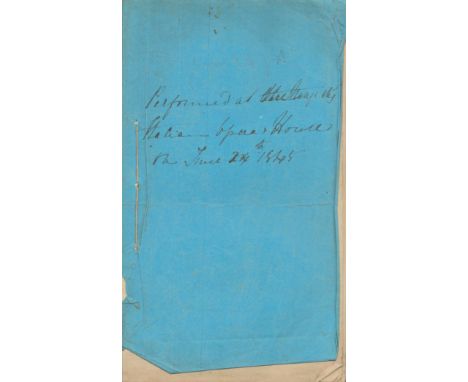 Performed at the
Italian Opera House
on June 24th 1845